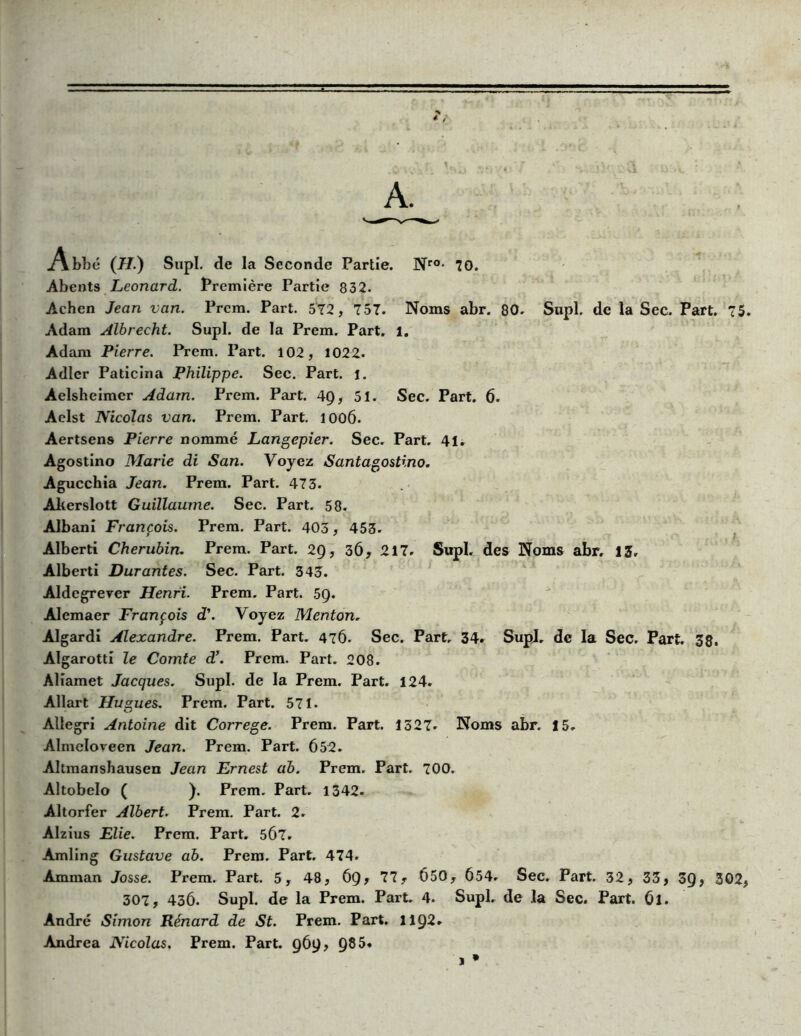 A.
Abbé (H.) Supl. de la Seconde Partie. Nro. 70.
Abents Leonard. Première Partie 832.
Achen Jean van. Prem. Part. 572, 757. Noms abr. 80. Supl. de la Sec. Part. 75.
Adam Albrecht. Supl. de la Prem. Part. 1.
Adam Pierre. Prem. Part. 102, 1022.
Adler Paticina Philippe. Sec. Part. 1.
Aelsheimer Adam. Prem. Part. 49, 51. Sec. Part. 6.
Aelst Nicolas van. Prem. Part. 1006.
Aertsens Pierre nommé Langepier. Sec. Part. 41.
Agostino Marie di San. Voyez Santagostino.
Agucchia Jean. Prem. Part. 473.
Akerslott Guillaume. Sec. Part. 58.
Albani François. Prem. Part. 403, 453.
Alberti Cherubin. Prem. Part. 29, 36, 217. Supl. des Noms abr. 13.
Alberti Durantes. Sec. Part. 343.
Aldegrever Henri. Prem. Part. 59.
Alemaer François d'. Voyez Menton.
Algardi Alexandre. Prem. Part. 476. Sec. Part. 34. Supl. de la Sec. Part. 38.
Algarotti le Comte d'. Prem. Part. 208.
Aliamet Jacques. Supl. de la Prem. Part. 124.
Allart Hugues. Prem. Part. 571.
Allegri Antoine dit Correge. Prem. Part. 1327. Noms abr. 15.
Almeloveen Jean. Prem. Part. 652.
Altmanshausen Jean Ernest ab. Prem. Part. 700.
Altobelo ( ). Prem. Part. 1342.
Altorfer Albert. Prem. Part. 2.
Alzius Elie. Prem. Part. 567.
Amling Gustave ab. Prem. Part. 474.
Amman Josse. Prem. Part. 5, 48, 69, 77, 650, 654. Sec. Part. 32, 33, 39, 302,
307, 436. Supl. de la Prem. Part. 4. Supl. de la Sec. Part. 61.
André Simon Rénard de St. Prem. Part. 1192.
Andrea Nicolas. Prem. Part. 969, 985.
1 *